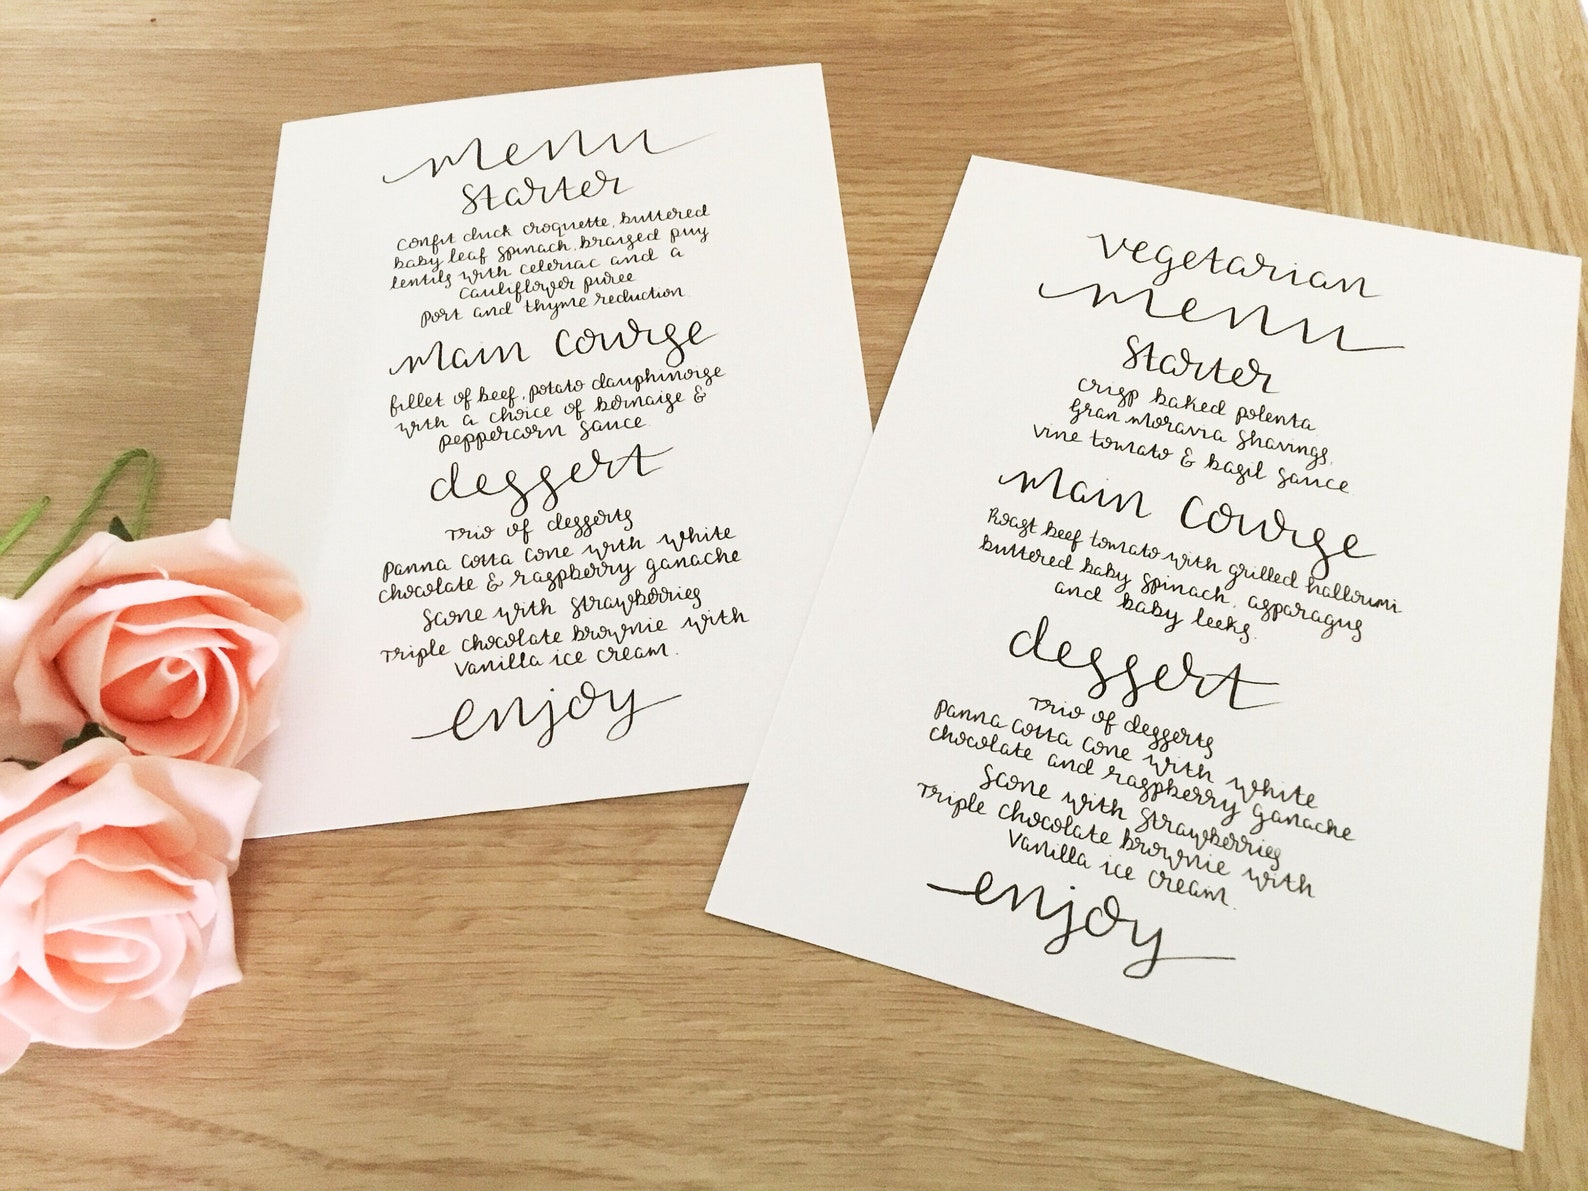 menu
starter
Confit duck croquette, buttered
baby leaf spinach, braised puy
lentils with celeriac and a
cauliflower puree
port and thyme reduction.
main course
fillet of beef, potato dauphinoise
with a choice of bernaise &
peppercorn sauce.
dessert
Trio of desserts
Panna cotta cone with white
chocolate & raspberry ganache
Scone with strawberries
Triple chocolate brownie with
Vanilla ice cream.
enjoy
vegetarian
menu
starter
Crisp baked polenta
Gran moravia shavings,
vine tomato & basil sauce
main course
Roast beef tomato with grilled halloumi
buttered baby spinach, asparagus
and baby leeks.
dessert
Trio of desserts
Panna cotta cone with white
chocolate and raspberry ganache
Scone with strawberries
Triple chocolate brownie with
Vanilla ice cream.
enjoy